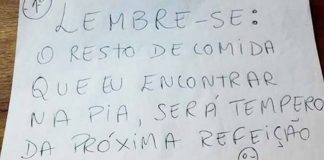 1º
LEMBRE-SE:
O RESTO DE COMIDA
QUE EU ENCONTRAR
NA PIA, SERÁ TEMPERO
DA PRÓXIMA REFEIÇÃO